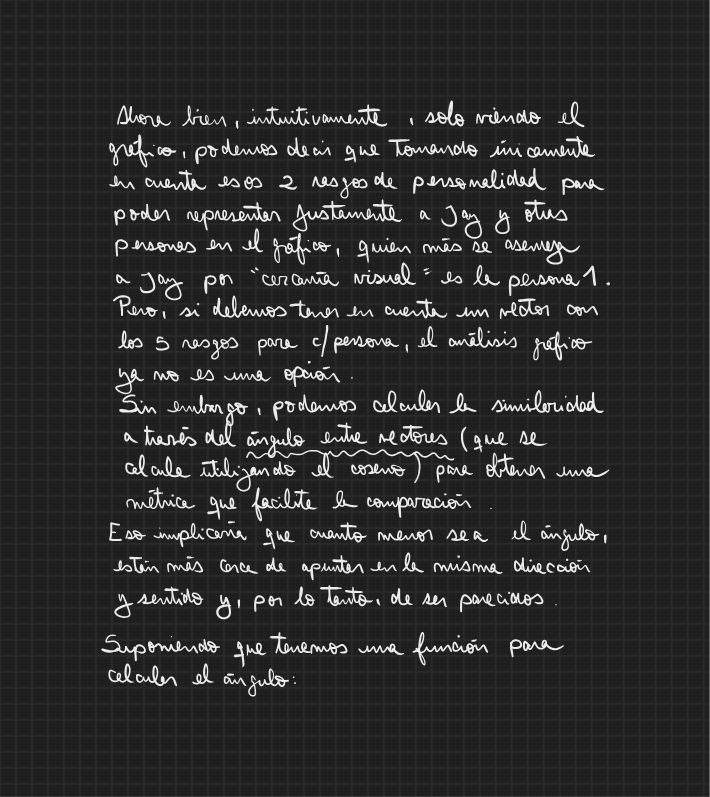 Ahora bien, intuitivamente, solo viendo el
gráfico, podemos decir que tomando únicamente
en cuenta esos 2 rasgos de personalidad para
poder representar justamente a Jay y otras
personas en el gráfico, quien más se asemeja
a Jay por "cercanía visual" es la persona 1.
Pero, si debemos tener en cuenta un vector con
los 5 rasgos para c/persona, el análisis gráfico
ya no es una opción.
Sin embargo, podemos calcular la similaridad
a través del ángulo entre vectores (que se
calcula utilizando el coseno) para obtener una
métrica que facilite la comparación.
Eso implicaría que cuanto menor sea el ángulo,
están más cerca de apuntar en la misma dirección
y sentido y, por lo tanto, de ser parecidos.
Suponiendo que tenemos una función para
calcular el ángulo: